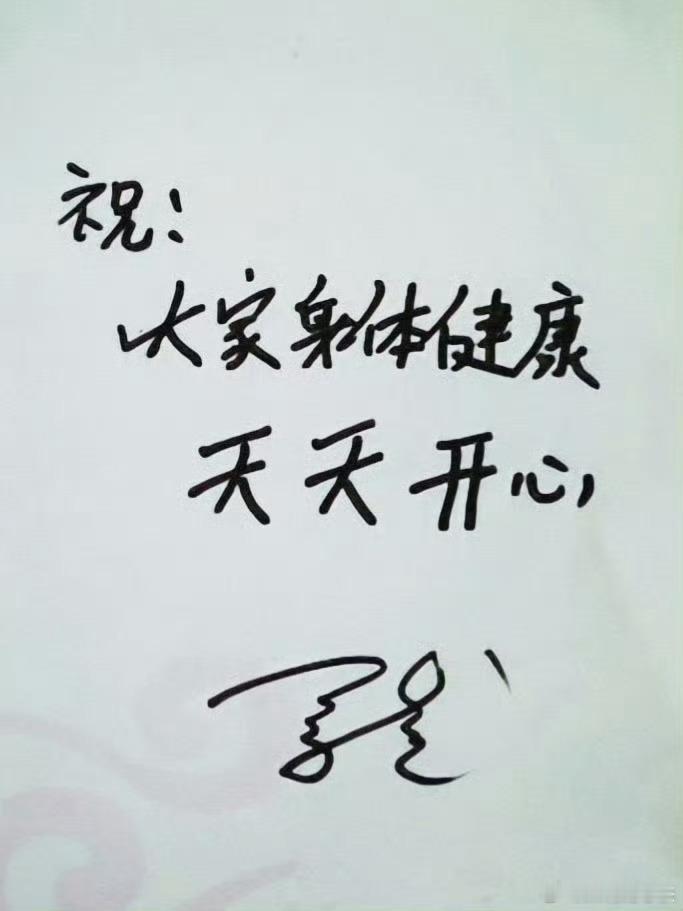 祝:
大家身体健康
天天开心